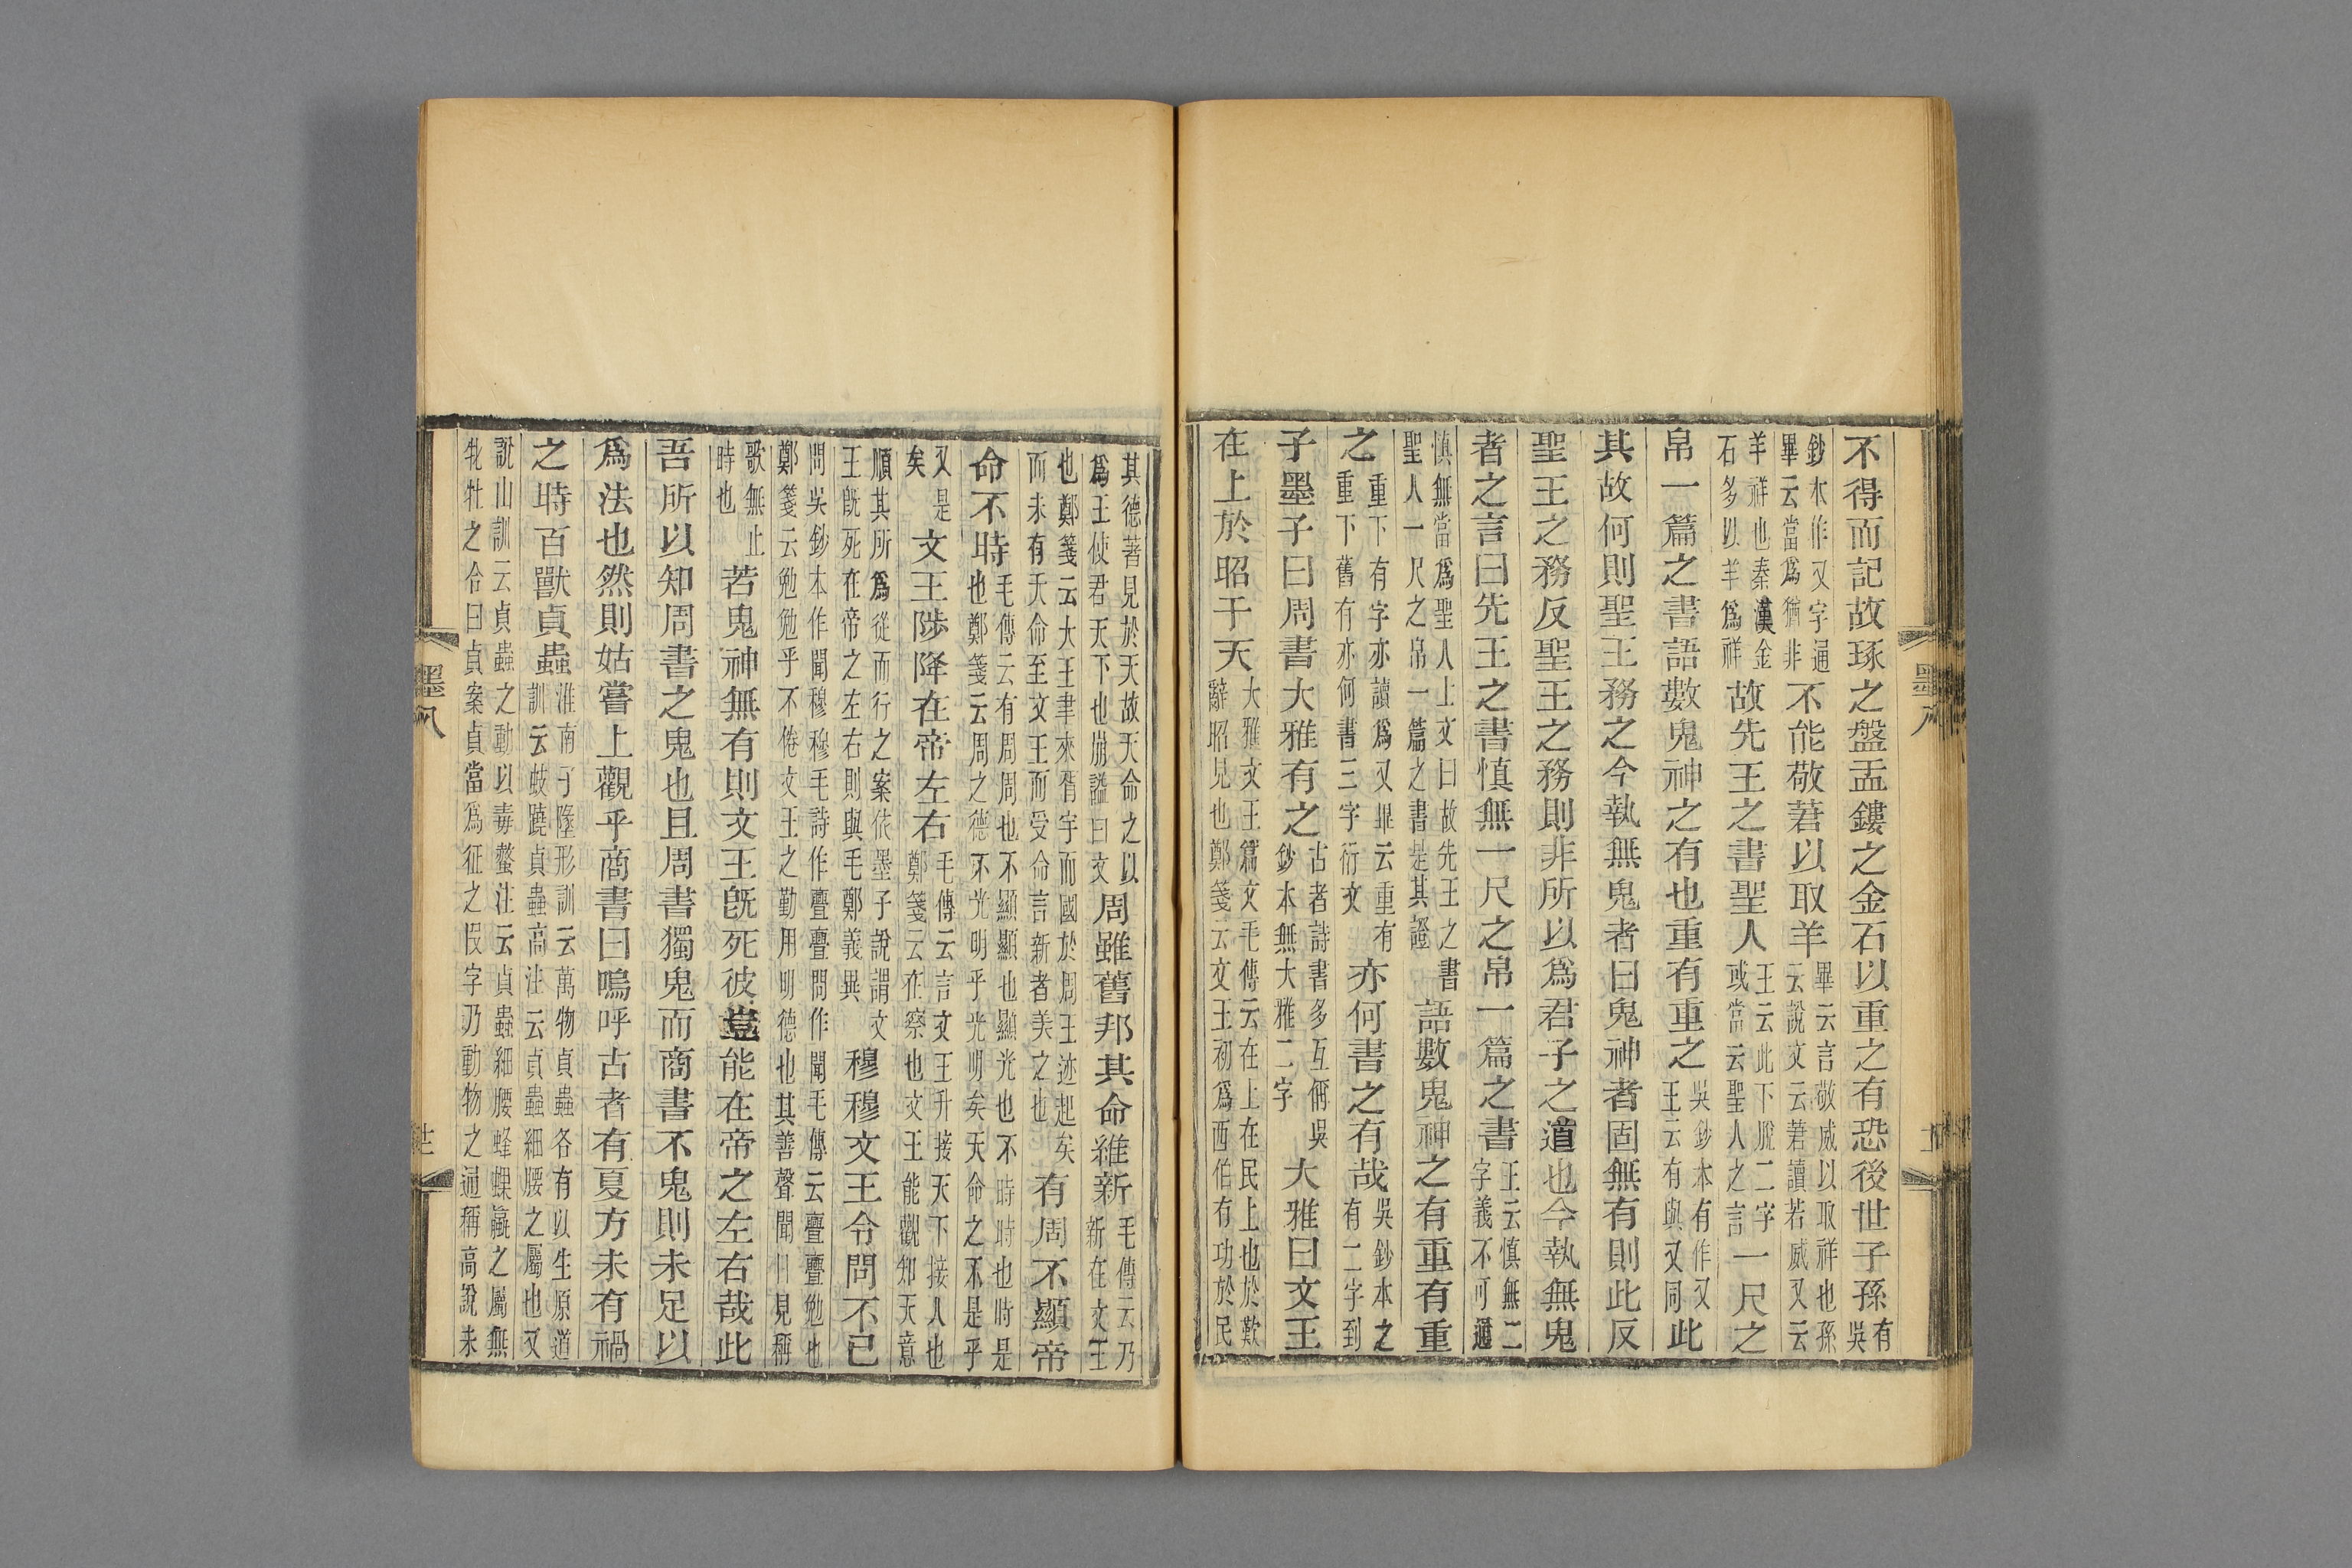 不得而記故琢之盤盂鏤之金石以重之有恐後世子孫有吳
鈔本作又字通畢云當爲猶非不能敬莙以取羊畢云言敬威以取祥也孫云說文云莙讀若威又云
羊祥也秦漢金石多以羊爲祥故先王之書聖人王云此下脫二字或當云聖人之言一尺之
帛一篇之書語數鬼神之有也重有重之吳鈔本有作又王云有與又同此
其故何則聖王務之今執無鬼者曰鬼神者固無有則此反
聖王之務反聖王之務則非所以爲君子之道也今執無鬼
者之言曰先王之書慎無一尺之帛一篇之書王云慎無二字義不可通
慎無當爲聖人上文曰故先王之書聖人一尺之帛一篇之書是其證語數鬼神之有重有重
之重下有字亦讀爲又畢云重有重下舊有亦何書三字衍文亦何書之有哉吳鈔本之有二字到
子墨子曰周書大雅有之古者詩書多互偁吳鈔本無大雅二字大雅曰文王
在上於昭于天大雅文王篇文毛傳云在上在民上也於歎辭昭見也鄭箋云文王初爲西伯有功於民
墨八
其德著見於天故天命之以爲王使君天下也崩謚曰文周雖舊邦其命維新毛傳云乃新在文王
也鄭箋云大王聿來胥宇而國於周王迹起矣而未有天命至文王而受命言新者美之也有周不顯帝
命不時毛傳云有周周也不顯顯也顯光也不時時也時是也鄭箋云周之德不光明乎光明矣天命之不是乎
又是矣文王陟降在帝左右毛傳云言文王升接天下接人也鄭箋云在察也文王能觀知天意
順其所爲從而行之案依墨子說謂文王旣死在帝之左右則與毛鄭義異穆穆文王令問不已
問吳鈔本作聞穆穆毛詩作亹亹問作聞毛傳云亹亹勉也鄭箋云勉勉乎不倦文王之勤用明德也其善聲聞日見稱
歌無止時也若鬼神無有則文王旣死彼豈能在帝之左右哉此
吾所以知周書之鬼也且周書獨鬼而商書不鬼則未足以
爲法也然則姑嘗上觀乎商書曰嗚呼古者有夏方未有禍
之時百獸貞蟲淮南子墜形訓云萬物貞蟲各有以生原道訓云蚑蟯貞蟲高注云貞蟲細腰之屬也又
說山訓云貞蟲之動以毒螫注云貞蟲細腰蜂蜾蠃之屬無牝牡之合曰貞案貞當爲征之叚字乃動物之通稱高說未
墨八